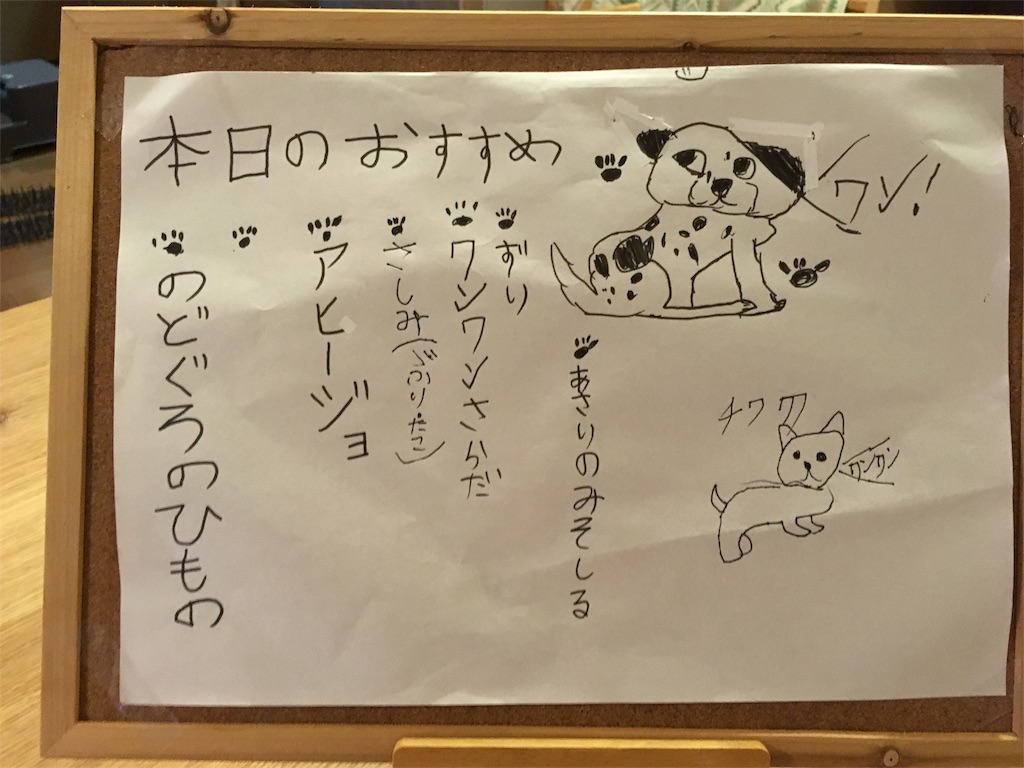 本日のおすすめ
ワン!
あさりのみそしる
ずり
ワンワンさらだ
さしみ(ぶり・たこ)
アヒージョ
のどぐろのひもの
チワワ
ワンワン